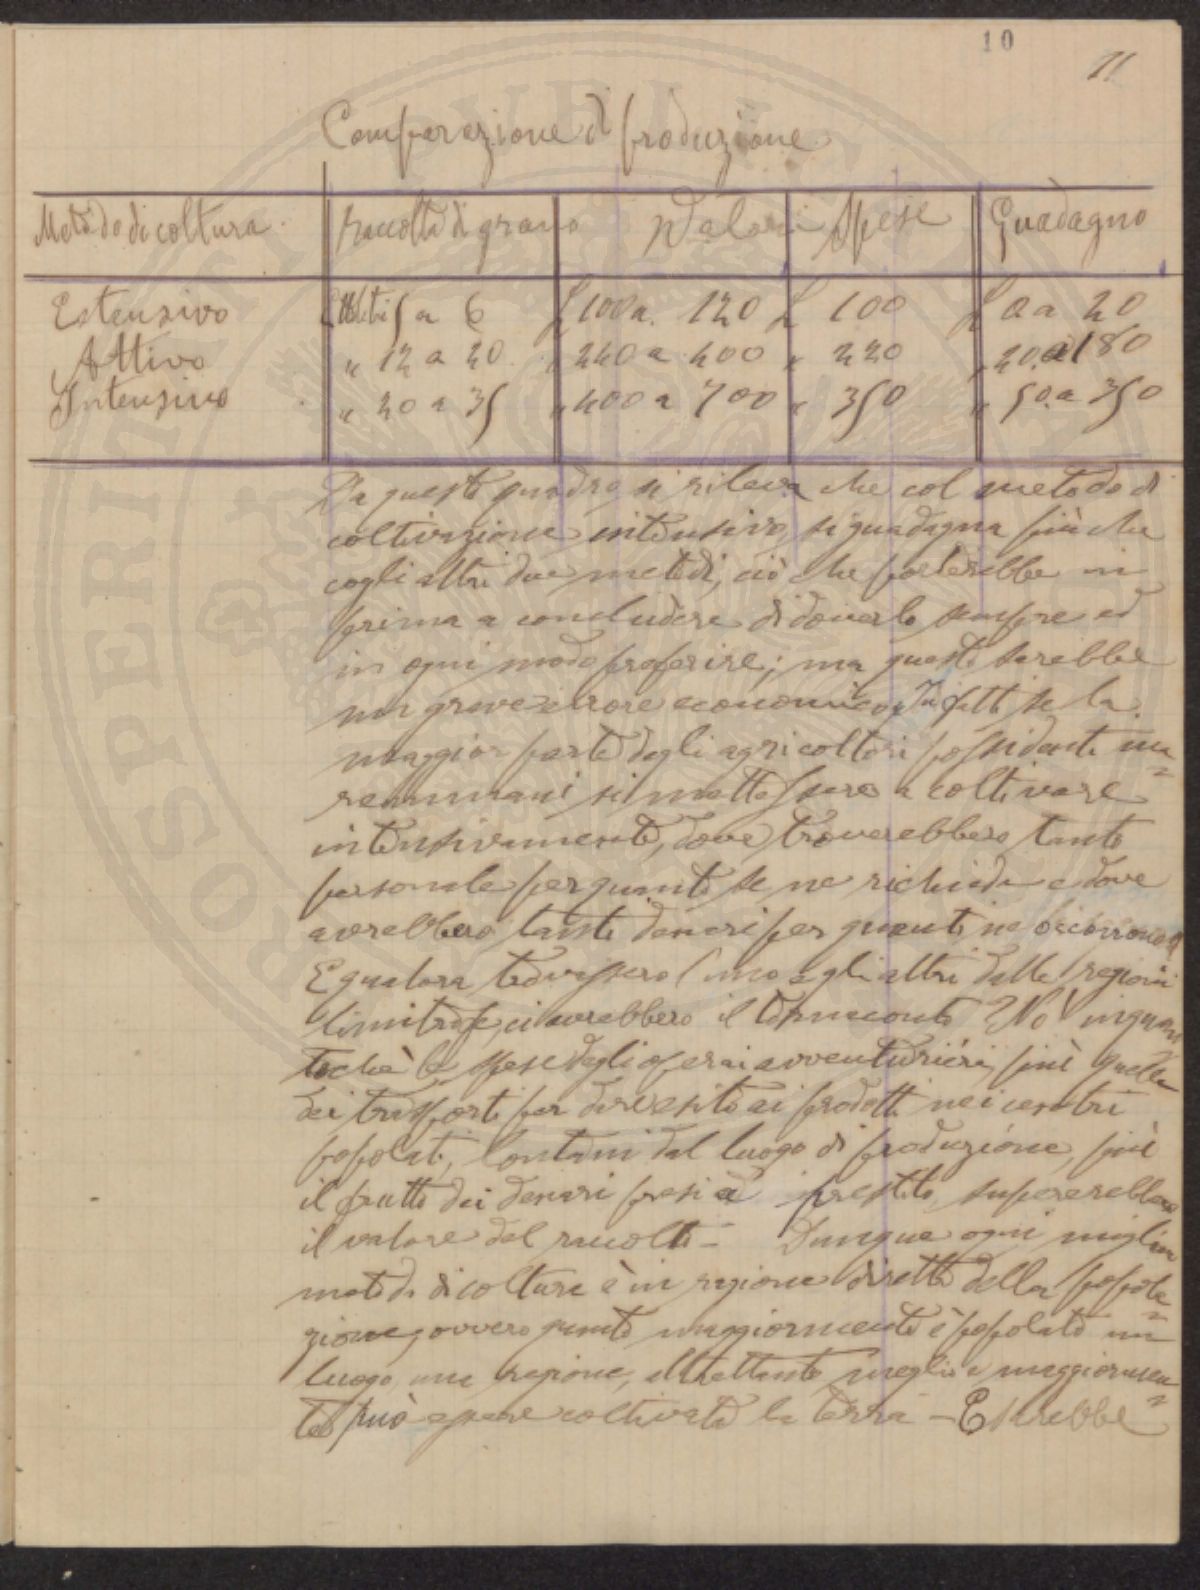 10
11
Comparazione di produzione
Metodo di coltura Raccolta di grano Valori Spese Guadagno
Estensivo Ettolitri 5 a 6 £ 100 a 120 £ 100 £ 0 a 20
Attivo " 12 a 20 " 240 a 400 " 220 " 20 a 180
Intensivo " 20 a 35 " 400 a 700 " 350 " 50 a 350
Da questo quadro si rileva che col metodo di
coltivazione intensivo, si guadagna più che
cogli altri due metodi, ciò che porterebbe in
prima a concludere di doverlo sempre ed
in ogni modo preferire; ma questo sarebbe
un grave errore economico. Infatti se la
maggior parte degli agricoltori possidenti ma=
remmani si mettessero a coltivare
intensivamente, dove troverebbero tanto
personale per quanto se ne richiede e dove
avrebbero tanti denari per quanti ne occorrono?
E qualora trovassero l'uno e gli altri dalle regioni
limitrofe, ci avrebbero il tornaconto? No! inquan
tochè le spese degli operai avventurieri, più quelle
dei trasporti per dare esito ai prodotti nei centri
popolati, lontani dal luogo di produzione, più
il frutto dei denari presi a prestito, supererebbero
il valore del raccolto - Dunque ogni miglior
metodo di coltura è in ragione diretta della popola=
zione, ovvero quanto maggiormente è popolato un
luogo, una regione, altrettanto meglio e maggiormen=
te può essere coltivata la terra - E sarebbe